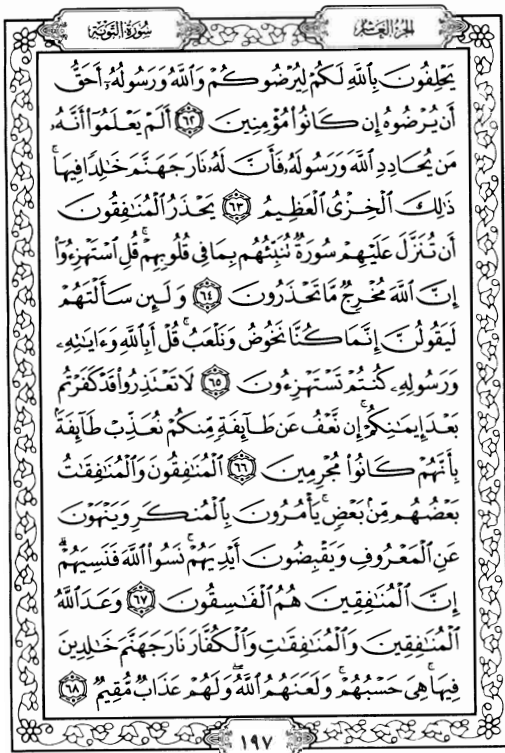 سُورَةُ التَّوْبَةِ
الجُزْءُ العَاشِرُ
يَحْلِفُونَ بِٱللَّهِ لَكُمْ لِيُرْضُوكُمْ وَٱللَّهُ وَرَسُولُهُۥٓ أَحَقُّ
أَن يُرْضُوهُ إِن كَانُوا۟ مُؤْمِنِينَ ٦٢ أَلَمْ يَعْلَمُوٓا۟ أَنَّهُۥ
مَن يُحَادِدِ ٱللَّهَ وَرَسُولَهُۥ فَأَنَّ لَهُۥ نَارَ جَهَنَّمَ خَـٰلِدًا فِيهَا ۚ
ذَٰلِكَ ٱلْخِزْىُ ٱلْعَظِيمُ ٦٣ يَحْذَرُ ٱلْمُنَـٰفِقُونَ
أَن تُنَزَّلَ عَلَيْهِمْ سُورَةٌ تُنَبِّئُهُم بِمَا فِى قُلُوبِهِمْ ۚ قُلِ ٱسْتَهْزِءُوٓا۟
إِنَّ ٱللَّهَ مُخْرِجٌ مَّا تَحْذَرُونَ ٦٤ وَلَئِن سَأَلْتَهُمْ
لَيَقُولُنَّ إِنَّمَا كُنَّا نَخُوضُ وَنَلْعَبُ ۚ قُلْ أَبِٱللَّهِ وَءَايَـٰتِهِۦ
وَرَسُولِهِۦ كُنتُمْ تَسْتَهْزِءُونَ ٦٥ لَا تَعْتَذِرُوا۟ قَدْ كَفَرْتُم
بَعْدَ إِيمَـٰنِكُمْ ۚ إِن نَّعْفُ عَن طَآئِفَةٍ مِّنكُمْ نُعَذِّبْ طَآئِفَةًۢ
بِأَنَّهُمْ كَانُوا۟ مُجْرِمِينَ ٦٦ ٱلْمُنَـٰفِقُونَ وَٱلْمُنَـٰفِقَـٰتُ
بَعْضُهُم مِّنۢ بَعْضٍ ۚ يَأْمُرُونَ بِٱلْمُنكَرِ وَيَنْهَوْنَ
عَنِ ٱلْمَعْرُوفِ وَيَقْبِضُونَ أَيْدِيَهُمْ ۚ نَسُوا۟ ٱللَّهَ فَنَسِيَهُمْ ۗ
إِنَّ ٱلْمُنَـٰفِقِينَ هُمُ ٱلْفَـٰسِقُونَ ٦٧ وَعَدَ ٱللَّهُ
ٱلْمُنَـٰفِقِينَ وَٱلْمُنَـٰفِقَـٰتِ وَٱلْكُفَّارَ نَارَ جَهَنَّمَ خَـٰلِدِينَ
فِيهَا ۚ هِىَ حَسْبُهُمْ ۚ وَلَعَنَهُمُ ٱللَّهُ ۖ وَلَهُمْ عَذَابٌ مُّقِيمٌ ٦٨
١٩٧